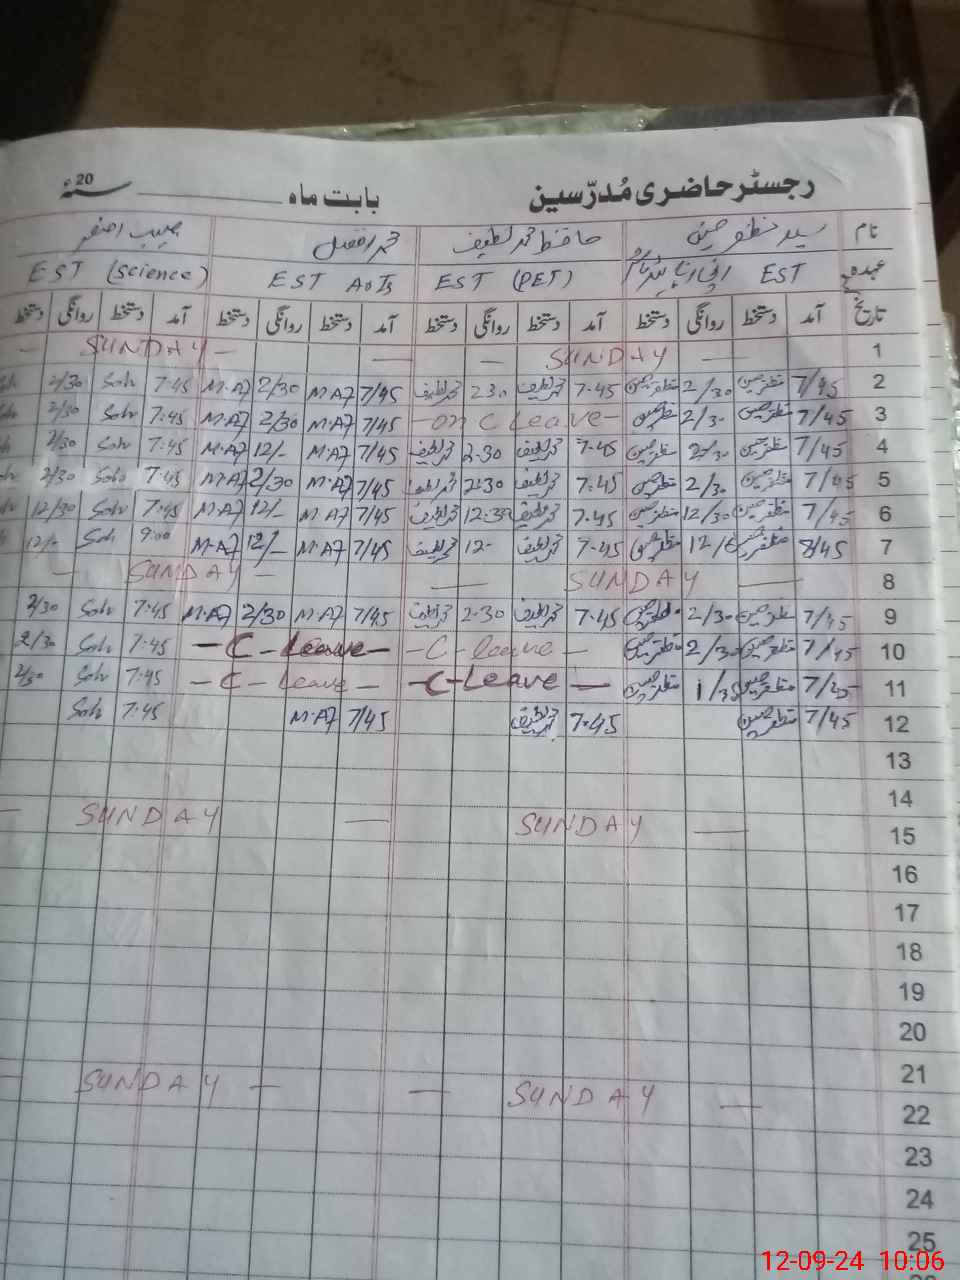 رجسٹر حاضری مُدرّسین بابت ماہ 20 سنہ
نام سید مظفر حسین حافظ محمد لطیف محمد افضل
عہدہ EST EST (PET) EST Arts EST (science)
تاریخ آمد دستخط روانگی دستخط آمد دستخط روانگی دستخط آمد دستخط روانگی دستخط آمد دستخط روانگی دستخط
1 — SUNDAY — — SUNDAY —
2 7/45 مظفر حسین 2/30 مظفر حسین 7.45 محمد لطیف 2.30 محمد لطیف 7/45 M.A7 2/30 M.A7 7:45 Soh 2/30 Soh
3 7/45 مظفر حسین 2/30 مظفر حسین -on C Leave- 7/45 M.A7 2/30 M.A7 7:45 Soh 2/30
4 7/45 مظفر حسین 2/30 مظفر حسین 7.45 محمد لطیف 2.30 محمد لطیف 7/45 M.A7 12/- M.A7 7:45 Soh 2/30
5 7/45 مظفر حسین 2/30 مظفر حسین 7.45 محمد لطیف 2.30 محمد لطیف 7/45 M.A7 2/30 M.A7 7:45 Soh 2/30
6 7/45 مظفر حسین 12/30 مظفر حسین 7.45 محمد لطیف 12.30 محمد لطیف 7/45 M.A7 12/- M.A7 7:45 Soh 12/30
7 8/45 مظفر حسین مظفر حسین 7.45 محمد لطیف 12- محمد لطیف 7/45 M.A7 12/- M.A7 9:00 Soh 12/-
8 — SUNDAY — — SUNDAY —
9 7/45 مظفر حسین 2/30 مظفر حسین 7.45 محمد لطیف 2.30 محمد لطیف 7/45 M.A7 2/30 M.A7 7:45 Soh 2/30
10 7/45 مظفر حسین 2/30 مظفر حسین -C-leave- -C-Leave- 7:45 Soh 2/30
11 مظفر حسین مظفر حسین -C-Leave- -C-Leave- 7:45 Soh 2/30
12 7/45 مظفر حسین 7.45 محمد لطیف 7/45 M.A7 7:45 Soh
13
14
15 — SUNDAY — SUNDAY —
16
17
18
19
20
21
22 — SUNDAY — — SUNDAY —
23
24
25
12-09-24 10:06